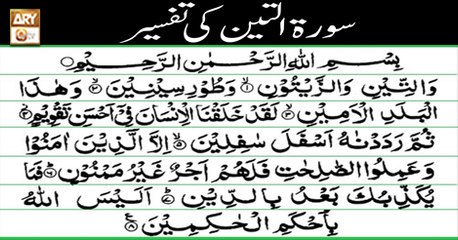 ARY
Qtv
سورۃ التین کی تفسیر
بِسْمِ اللهِ الرَّحْمٰنِ الرَّحِيْمِ
وَالتِّيْنِ وَالزَّيْتُوْنِ ۙ۱ وَطُوْرِ سِيْنِيْنَ ۙ۲ وَهٰذَا
الْبَلَدِ الْاَمِيْنِ ۙ۳ لَقَدْ خَلَقْنَا الْاِنْسَانَ فِيْۤ اَحْسَنِ تَقْوِيْمٍ ۴
ثُمَّ رَدَدْنٰهُ اَسْفَلَ سٰفِلِيْنَ ۙ۵ اِلَّا الَّذِيْنَ اٰمَنُوْا
وَعَمِلُوا الصّٰلِحٰتِ فَلَهُمْ اَجْرٌ غَيْرُ مَمْنُوْنٍ ۶ فَمَا
يُكَذِّبُكَ بَعْدُ بِالدِّيْنِ ۷ اَلَيْسَ اللهُ
بِاَحْكَمِ الْحٰكِمِيْنَ ۸